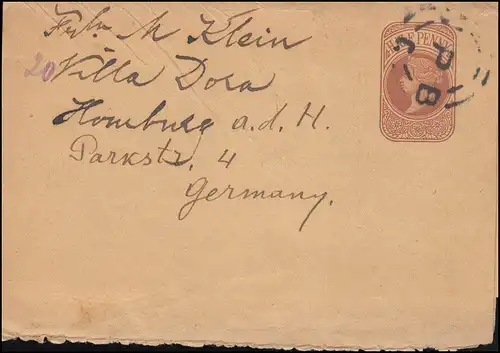 Frln M Klein
HALF PENNY
20 Villa Dora
Homburg a.d. H.
Parkstr. 4
Germany.